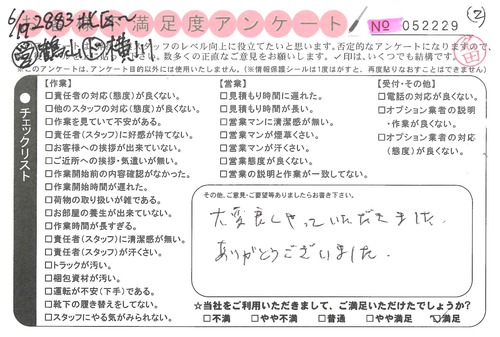 6/17 2883
満足度アンケート
No 052229
②
鶴山 横川
スタッフのレベル向上に役立てたいと思います。否定的なアンケートになりますので、
数多くの正直なご意見をお願いします。✓印は、いくつでも結構です。
※このアンケートは、アンケート目的以外には使用いたしません。(※情報保護シールは1度はがすと、再度貼りなおすことはできません)
チェックリスト
【作業】
□責任者の対応(態度)が良くない。
□他のスタッフの対応(態度)が良くない。
□作業を見ていて不安がある。
□責任者(スタッフ)に好感が持てない。
□お客様への挨拶が出来ていない。
□ご近所への挨拶・気遣いが無い。
□作業開始前の内容確認がなかった。
□作業開始時間が遅れた。
□荷物の取り扱いが雑である。
□お部屋の養生が出来ていない。
□作業時間が長すぎる。
□責任者(スタッフ)に清潔感が無い。
□責任者(スタッフ)が汗くさい。
□トラックが汚い。
□梱包資材が汚い。
□運転が不安(下手)である。
□靴下の履き替えをしてない。
□スタッフにやる気がみられない。
【営業】
□見積もり時間に遅れた。
□見積もり時間が長い。
□営業マンに清潔感が無い。
□営業マンが煙草くさい。
□営業マンが汗くさい。
□営業態度が良くない。
□営業の説明と作業が一致してない。
【受付・その他】
□電話の対応が良くない。
□オプション業者の説明
・作業が良くない。
□オプション業者の対応
(態度)が良くない。
その他、ご意見・ご要望等ありましたらお書き下さい。
大変良くやっていただきました。
ありがとうございました。
☆当社をご利用いただきまして、ご満足いただけたでしょうか?
□不満 □やや不満 □普通 □やや満足 ☑満足